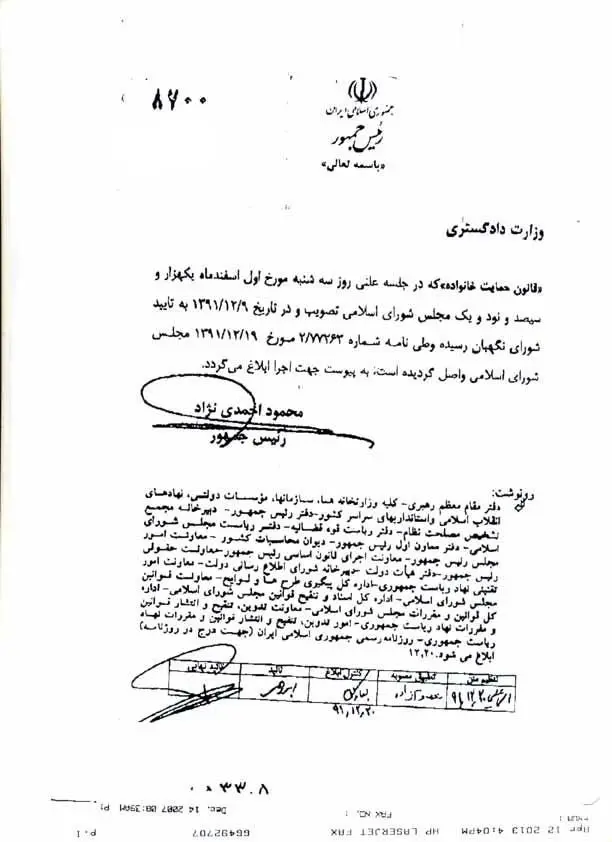 ۸۷۰۰
جمهوری اسلامی ایران
رئیس جمهور
«باسمه تعالی»
وزارت دادگستری
«قانون حمایت خانواده»که در جلسه علنی روز سه شنبه مورخ اول اسفندماه یکهزار و
سیصد و نود و یک مجلس شورای اسلامی تصویب و در تاریخ ۱۳۹۱/۱۲/۹ به تایید
شورای نگهبان رسیده وطی نامه شماره ۲/۷۷۲۶۳ مورخ ۱۳۹۱/۱۲/۱۹ مجلس
شورای اسلامی واصل گردیده است، به پیوست جهت اجرا ابلاغ می‌گردد.
محمود احمدی نژاد
رئیس جمهور
رونوشت:
دفتر مقام معظم رهبری- کلیه وزارتخانه ها، سازمانها، مؤسسات دولتی، نهادهای
انقلاب اسلامی واستانداریهای سراسر کشور-دفتر رئیس جمهور- دبیرخانه مجمع
تشخیص مصلحت نظام- دفتر ریاست قوه قضائیه- دفتر ریاست مجلس شورای
اسلامی- دفتر معاون اول رئیس جمهور- دیوان محاسبات کشور - معاونت امور
مجلس رئیس جمهور-معاونت اجرای قانون اساسی رئیس جمهور-معاونت حقوقی
رئیس جمهور-دفتر هیأت دولت -دبیرخانه شورای اطلاع رسانی دولت- معاونت امور
تقنینی نهاد ریاست جمهوری-اداره کل پیگیری طرح ها و لوایح- معاونت قوانین
مجلس شورای اسلامی- اداره کل اسناد و تنقیح قوانین مجلس شورای اسلامی- اداره
کل قوانین و مقررات مجلس شورای اسلامی- معاونت تدوین، تنقیح و انتشار قوانین
و مقررات نهاد ریاست جمهوری- امور تدوین، تنقیح و انتشار قوانین و مقررات نهاد
ریاست جمهوری- روزنامه رسمی جمهوری اسلامی ایران (جهت درج در روزنامه)
ابلاغ می شود.۱۲,۲۰
تنظیم متن تطبیق مصوبه کنترل ابلاغ تائید تائید نهایی
۹۱,۱۲,۲۰
۹۱,۱۲,۲۰
۰۰۳۳۰۸
Dec. 14 2007 08:39AM P1
FAX NO. :
Apr 12 2013 4:04PM HP LASERJET FAX 66492707 p.1